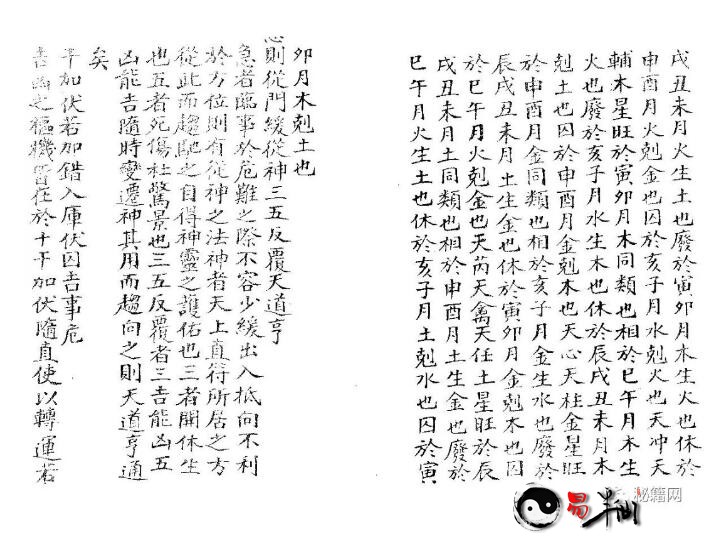 戌丑未月火生土也廢於寅卯月木生火也休於
申酉月火剋金也囚於亥子月水剋火也天冲天
輔木星旺於寅卯月木同類也相於巳午月木生
火也廢於亥子月水生木也休於辰戌丑未月木
剋土也囚於申酉月金剋木也天心天柱金星旺
於申酉月金同類也相於亥子月金生水也廢於
辰戌丑未月土生金也休於寅卯月金剋木也囚
於巳午月火剋金也天芮天禽天任土星旺於辰
戌丑未月土同類也相於申酉月土生金也廢於
巳午月火生土也休於亥子月土剋水也囚於寅
卯月木剋土也
則從門緩從神三五反覆天道亨
急者臨事於危難之際不容少緩出入抵向不利
於方位則有從神之法神者天上直符所居之方
從此而趨馳之自得神靈之護佑也三者開休生
也五者死傷杜驚景也三五反覆者三吉能凶五
凶能吉隨時變遷神其用而趨向之則天道亨通
矣
干加伏若加錯入庫伏囚吉事危
吉凶之樞機皆在於十干加伏隨直使以轉運若
易半仙
秘籍网